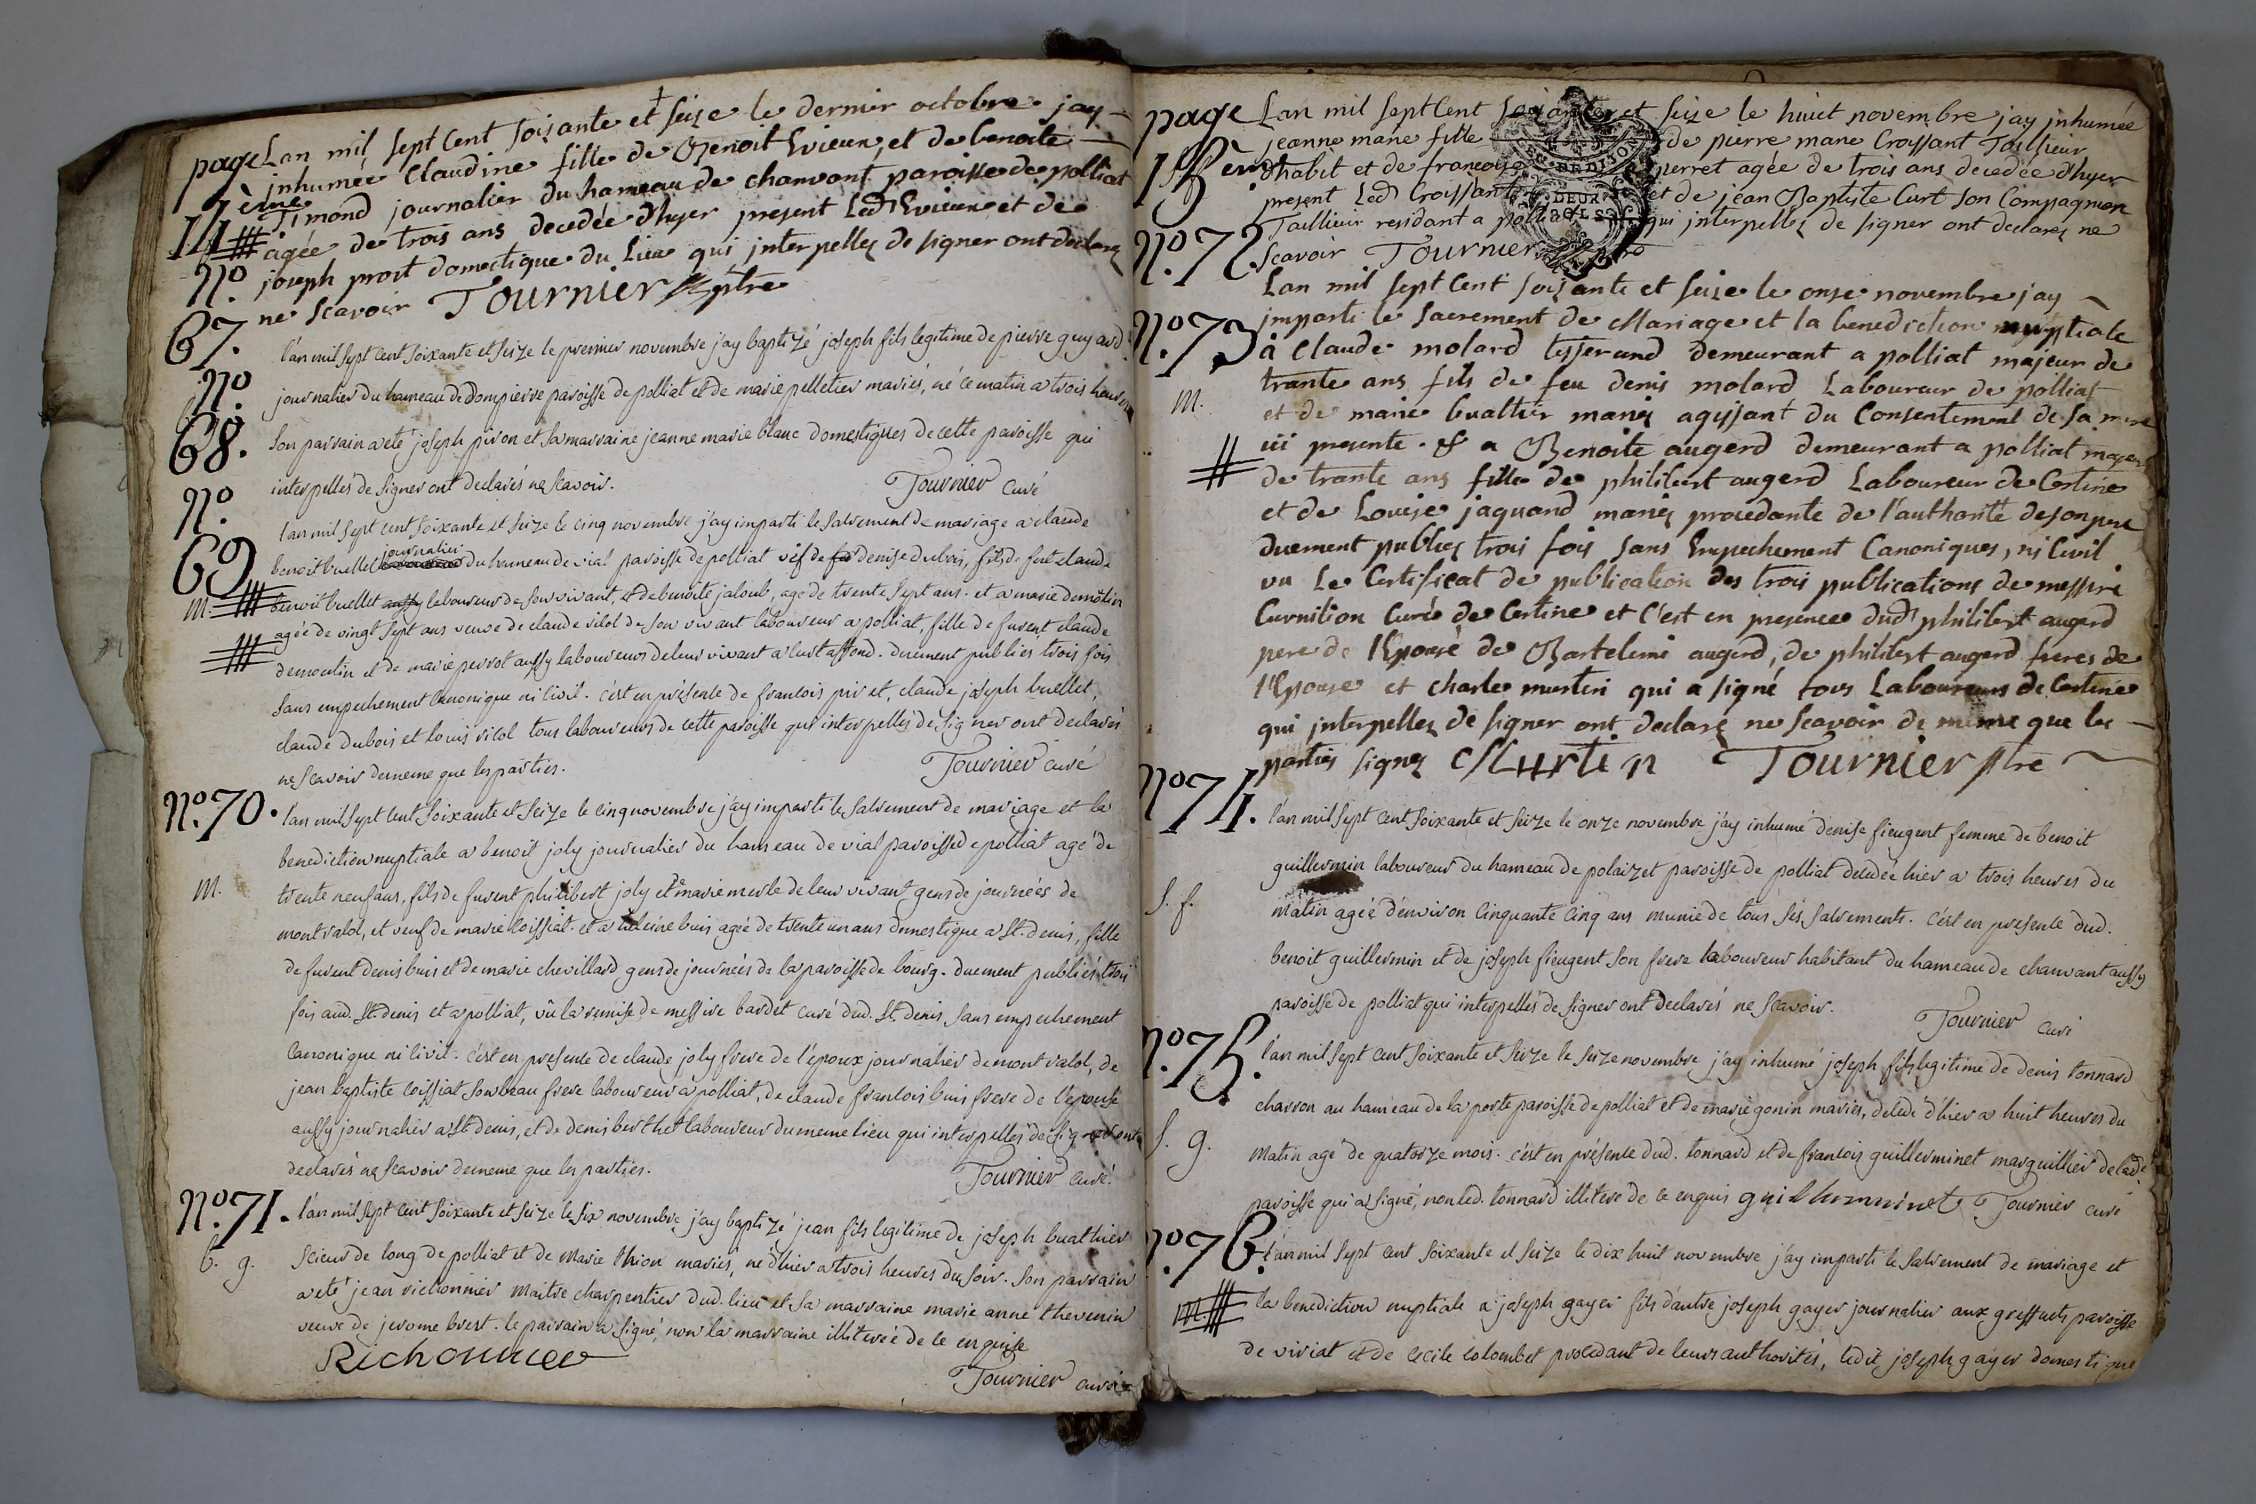 page
14ème
Lan mil sept Cent soisante et seise le dernier octobre jay
inhumée Claudine fille de Benoit Evieux, et de benoite
Timond journalier du hameau de chanvant paroisse de polliat
agée de trois ans decedée d'hyer present Led Evieux et de
joseph prost domestique du Lieu qui interpellez de signer ont declarez
ne scavoir Tournier ptre
No 67.
l'an mil sept cent soixante et seize le premier novembre j'ay baptizé joseph fils legitime de pierre guyard
journalier du hameau de Dompierre paroisse de polliat et de marie pelletier mariés, né ce matin a trois heures
son parrain a eté joseph piron et sa marraine jeanne marie blanc domestiques de cette paroisse qui
interpellés de signer ont declarés ne scavoir. Tournier curé
No 68.
No. 69
M.
l'an mil sept cent soixante et seize le cinq novembre j'ay imparti le sacrement de mariage a claude
benoit buellet journalier du hameau de vial paroisse de polliat vef de denise dubois, fils de feu claude
benoit buellet laboureur de son vivant, et de benoite jaloub, agé de trente sept ans. et a marie demolin
agée de vingt sept ans veuve de claude vilol de son vivant laboureur a polliat, fille de furent claude
demoulin et de marie perrot aussy laboureurs de leur vivant a curtaffond. duement publiés trois fois
sans empechement canonique ni civil. c'est en présence de francois privet, claude joseph buellet,
claude dubois et louis vilol tous laboureurs de cette paroisse qui interpellés de signer ont declarés
ne scavoir de meme que les parties. Tournier curé
No. 70.
M.
l'an mil sept cent soixante et seize le cinq novembre j'ay imparti le sacrement de mariage et la
benediction nuptiale a benoit joly journalier du hameau de vial paroisse de polliat agé de
trente neuf ans, fils de furent philibert joly et marie merle de leur vivant gens de journées de
montvalol, et veuf de marie coissiat. et a buis agée de trente un ans domestique a St. denis, fille
de furent denis buis et de marie chevillard gens de journées de la paroisse de bourg. duement publiés trois
fois aud. St. denis et a polliat, vû la remise de messire bardet curé dud. St. denis sans empechement
canonique ni civil. c'est en presence de claude joly frere de l'epoux journalier de montvalol, de
jean baptiste coissiat son beau frere laboureur a polliat, de claude francois buis frere de l'epouse
aussy journalier a St. denis, et de denis berthet laboureur du meme lieu qui interpellés de signer ont
declarés ne scavoir de meme que les parties. Tournier curé.
No. 71.
b. g.
l'an mil sept cent soixante et seize le six novembre j'ay baptizé jean fils legitime de joseph buathier
scieur de long de polliat et de marie thion mariés, né d'hier a trois heures du soir. son parrain
a eté jean richonnier maitre charpentier dud. lieu et sa marraine marie anne thevenin
veuve de jerome brest. le parrain a signé, non la marraine illiterée de ce enquise
Richonnier Tournier curé
page
15ème
No. 72.
Lan mil sept Cent soisante et seise le huict novembre jay inhumée
jeanne marie fille de pierre marie Croissant Tallieur
d'habit et de francoise perret agée de trois ans decedée d'hyer
present Led Croissant et de jean Baptiste Curt son Compagnon
Tallieur residant a polliat qui interpellez de signer ont declarez ne
scavoir Tournier ptre
EN. DE DIJON
DEUX SOLS
No. 73
M.
Lan mil sept Cent soisante et seise le onse novembre jay
imparti le sacrement de Mariage et la benediction nuptiale
à Claude molard tisserand demeurant a polliat majeur de
trante ans fils de feu denis molard Laboureur de polliat
et de marie buathier mariez agissant du Consentement de sa mere
ici presente. & a Benoite augerd demeurant a polliat majeure
de trante ans fille de philibert augerd Laboureur de Certine
et de Louise jaquand mariez procedante de l'authorité de son pere
duement publiez trois fois sans Empechement Canoniques, ni Civil
vu Le Certificat de publication des trois publications de messire
Curnilion Curé de Certine et C'est en presence dud philibert augerd
pere de l'Epouse de Bartelemi augerd, de philibert augerd freres de
l'Epouse et charle murtin qui a signé tous Laboureurs de Certine
qui interpellez de signer ont declaré ne scavoir de meme que les
parties signez Murtin Tournier ptre
No 74.
S. f.
l'an mil sept cent soixante et seize le onze novembre j'ay inhumé denise fieugent femme de benoit
guillermin laboureur du hameau de polaizet paroisse de polliat decedée hier a trois heures du
matin agée d'environ cinquante cinq ans munie de tous ses sacrements. c'est en presence dud.
benoit guillermin et de joseph fieugent son frere laboureur habitant du hameau de chanvant aussy
paroisse de polliat qui interpellés de signer ont declarés ne scavoir. Tournier curé
No. 75.
S. g.
l'an mil sept cent soixante et seize le seize novembre j'ay inhumé joseph fils legitime de denis tonnard
charron au hameau de la porte paroisse de polliat et de marie gonin mariés, decedé d'hier a huit heures du
matin agé de quatorze mois. c'est en présence dud. tonnard et de francois guillerminet marguillier de lade.
paroisse qui a signé, non led. tonnard illitere de ce enquis guillerminet Tournier curé
No. 76.
M.
l'an mil sept cent soixante et seize le dix huit novembre j'ay imparti le sacrement de mariage et
la benediction nuptiale a joseph gayer fils d'autre joseph gayer journalier aux greffets paroisse
de viriat et de cecile colombet procedant de leurs authorités, ledit joseph gayer domestique